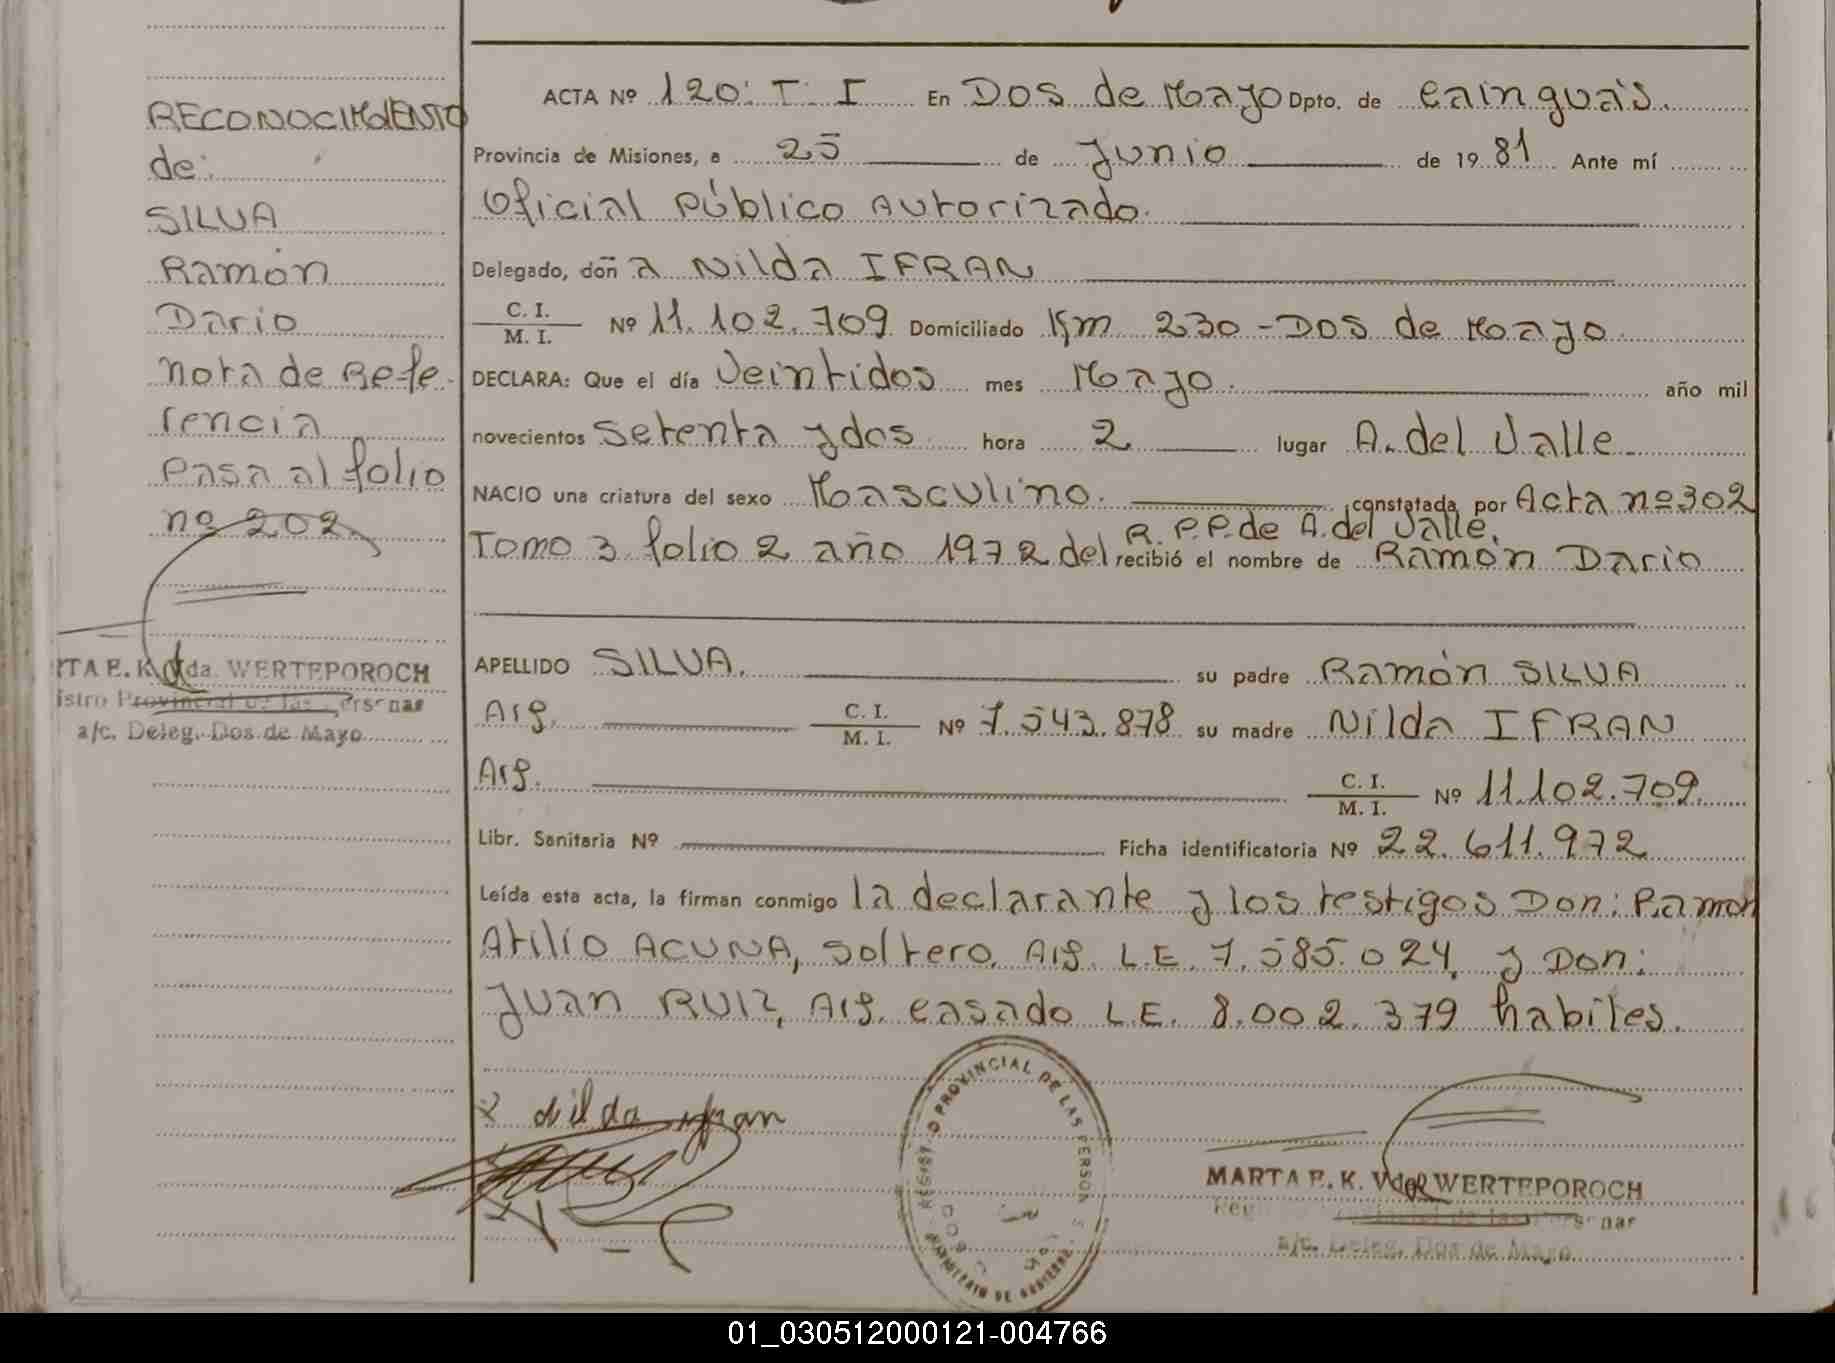 RECONOCIMIENTO
de:
SILVA
Ramón
Dario
nota de Refe-
rencia
pasa al folio
nº 202.
RTA E. K. Vda. WERTEPOROCH
istro Provincial de las Personas
a/c. Deleg. Dos de Mayo
ACTA Nº 120: T: I En Dos de Mayo Dpto. de Cainguás.
Provincia de Misiones, a 25 de Junio de 1981 Ante mí
Oficial Público Autorizado.
Delegado, doña Nilda IFRAN
C. I.
M. I. Nº 11.102.709 Domiciliado Km 230 - Dos de Mayo.
DECLARA: Que el día Veintidos mes Mayo. año mil
novecientos Setenta y dos hora 2 lugar A. del Valle
NACIO una criatura del sexo Masculino. constatada por Acta nº 302
Tomo 3 folio 2 año 1972 del R.P.P. de A. del Valle. recibió el nombre de Ramón Dario
APELLIDO SILVA. su padre Ramón SILVA
Arg. C. I. M. I. Nº 7.543.878 su madre Nilda IFRAN
Arg. C. I. M. I. Nº 11.102.709
Libr. Sanitaria Nº Ficha identificatoria Nº 22.611.972
Leída esta acta, la firman conmigo la declarante y los testigos Don: Ramon
Atilio ACUNA, soltero. Arg. L.E. 7.585.024, y Don:
Juan RUIZ, Arg. casado L.E. 8.002.379 habiles.
x Nilda Ifran
REGISTRO PROVINCIAL DE LAS PERSONAS
MINISTERIO DE GOBIERNO
MARTA E. K. Vda. WERTEPOROCH
Registro Provincial de las Personas
a/c. Deleg. Dos de Mayo
01_030512000121-004766